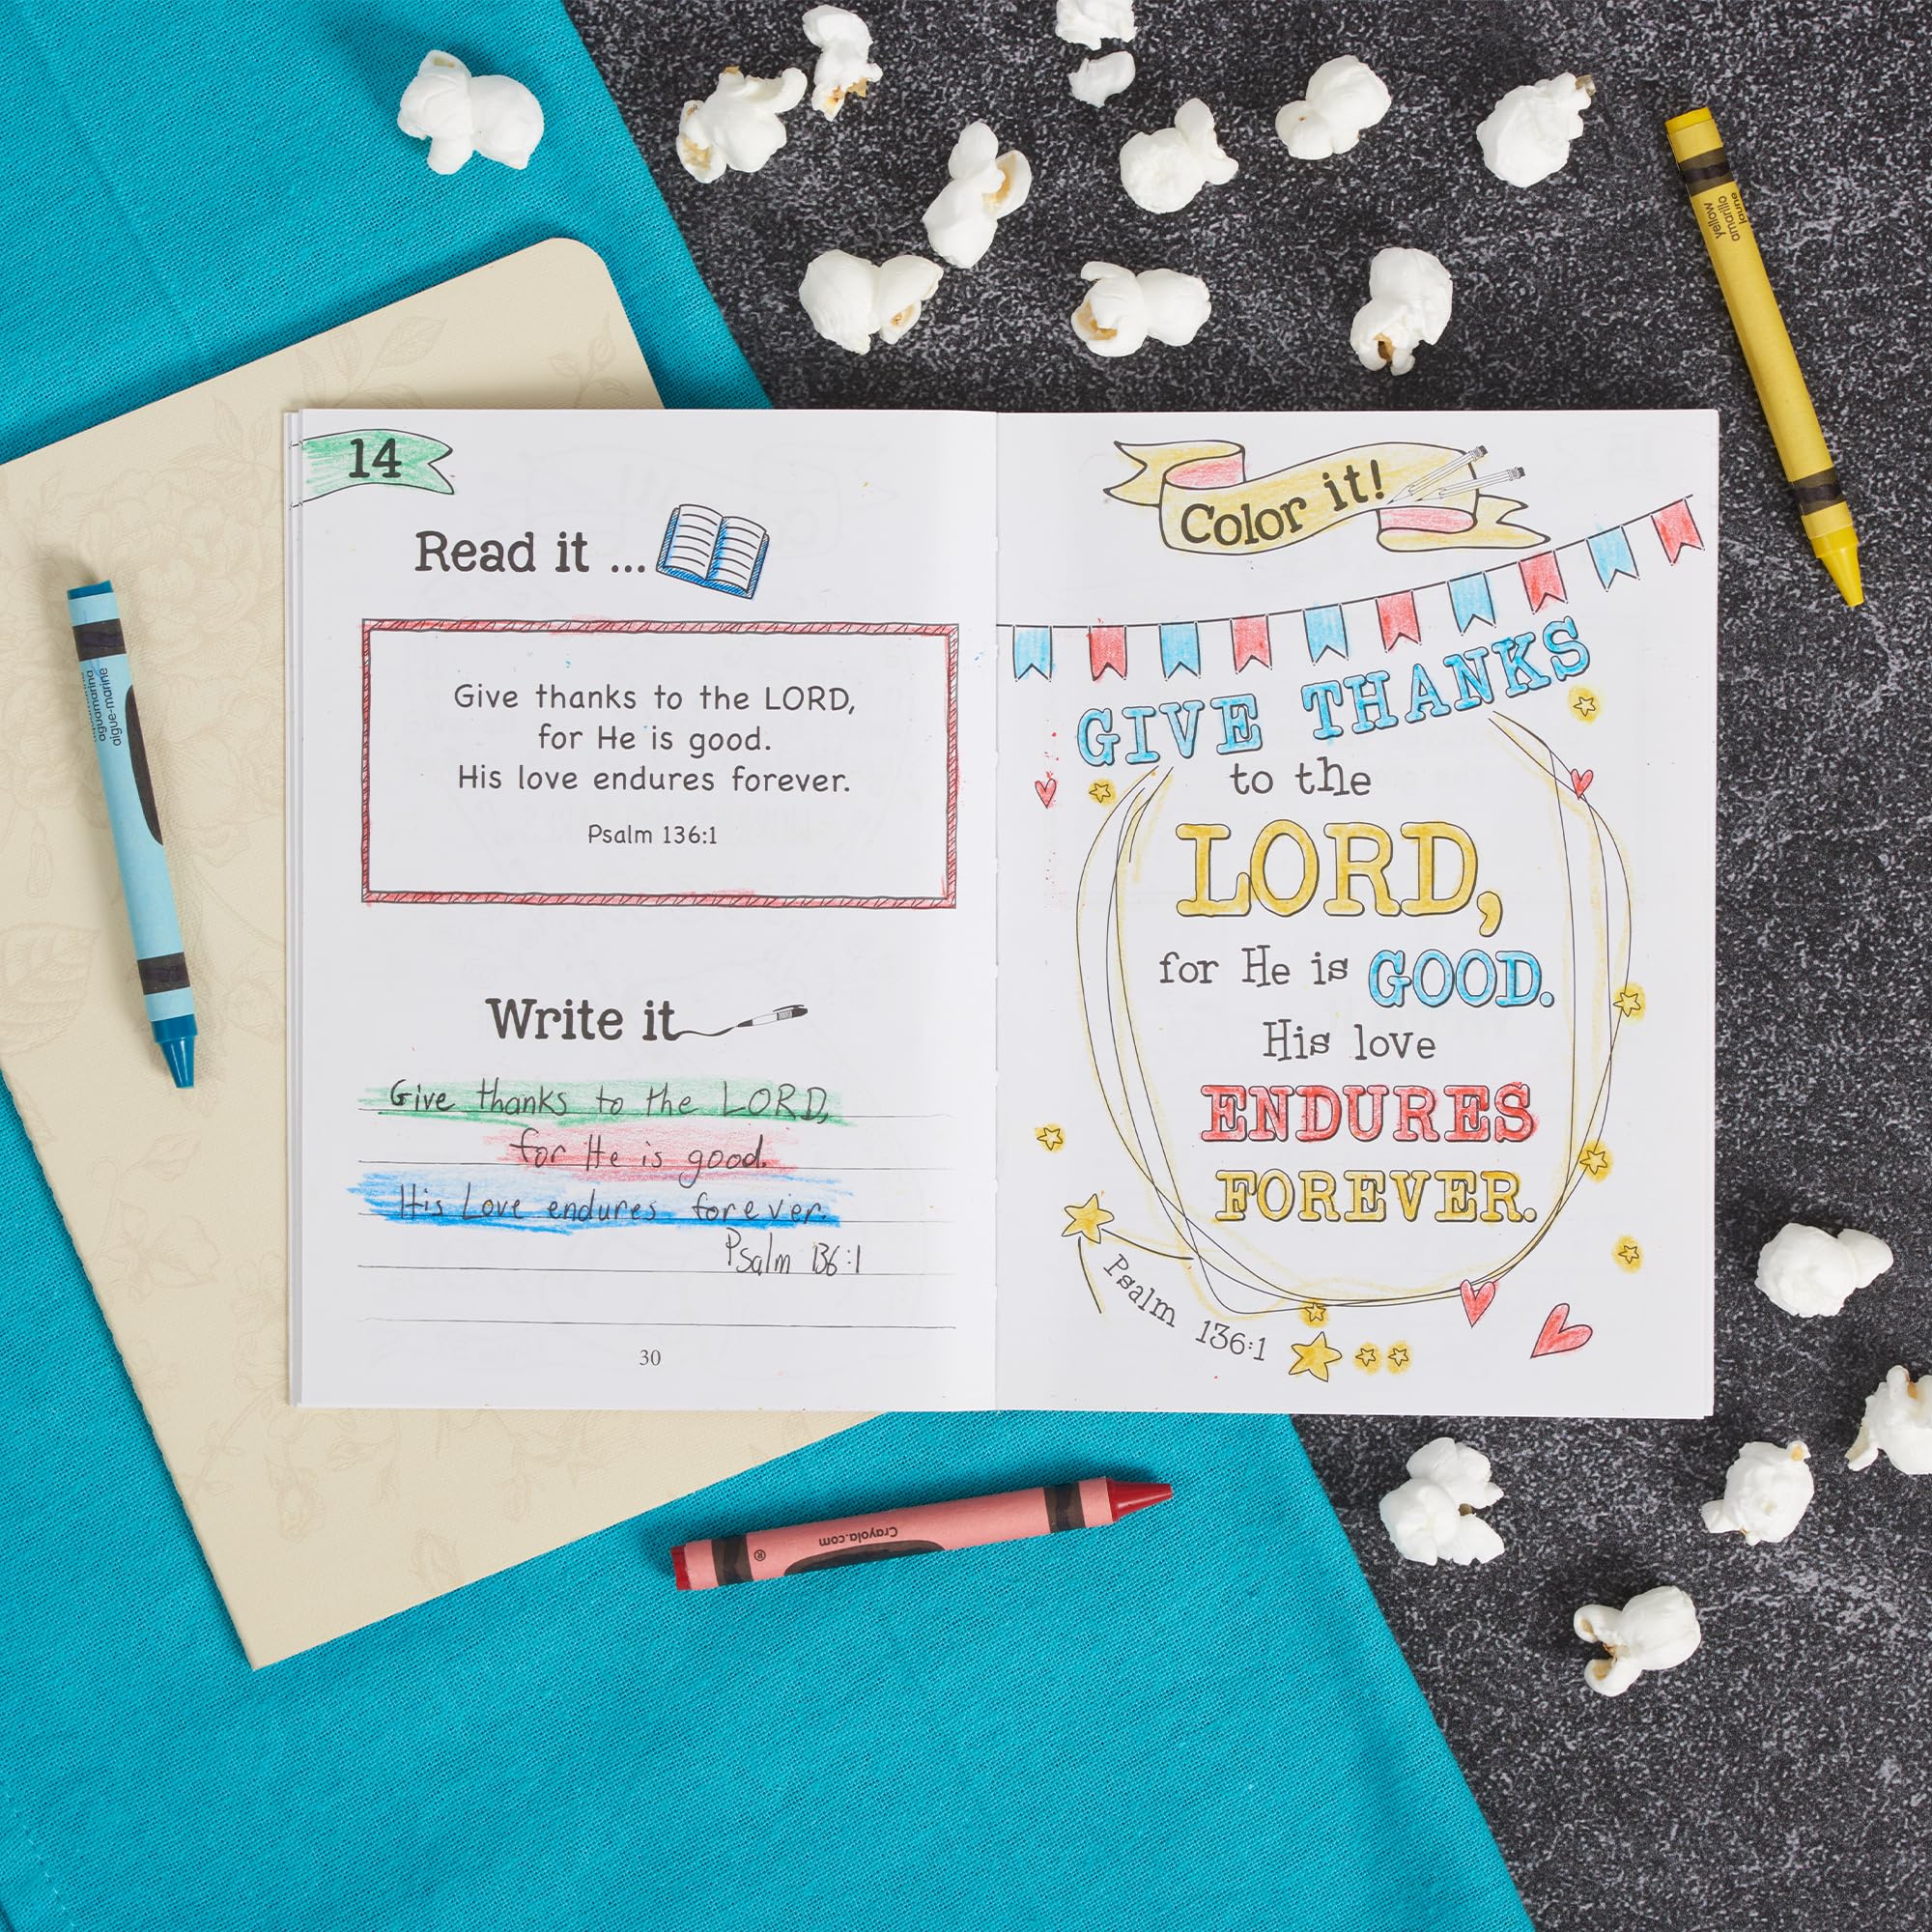 14
Read it ...
Give thanks to the LORD,
for He is good.
His love endures forever.
Psalm 136:1
Write it
Give thanks to the LORD,
for He is good.
His Love endures forever.
Psalm 136:1
30
Color it!
GIVE THANKS
to the
LORD,
for He is GOOD.
His love
ENDURES
FOREVER.
Psalm 136:1
yellow
amarillo
jaune
aigue-marine
aguamarina
Crayola.com
®